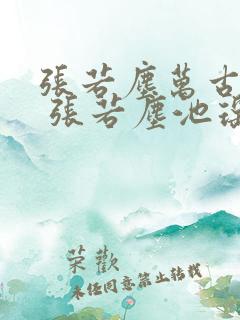 張若塵萬古
張若塵池
荣歡
未经同意禁止转载